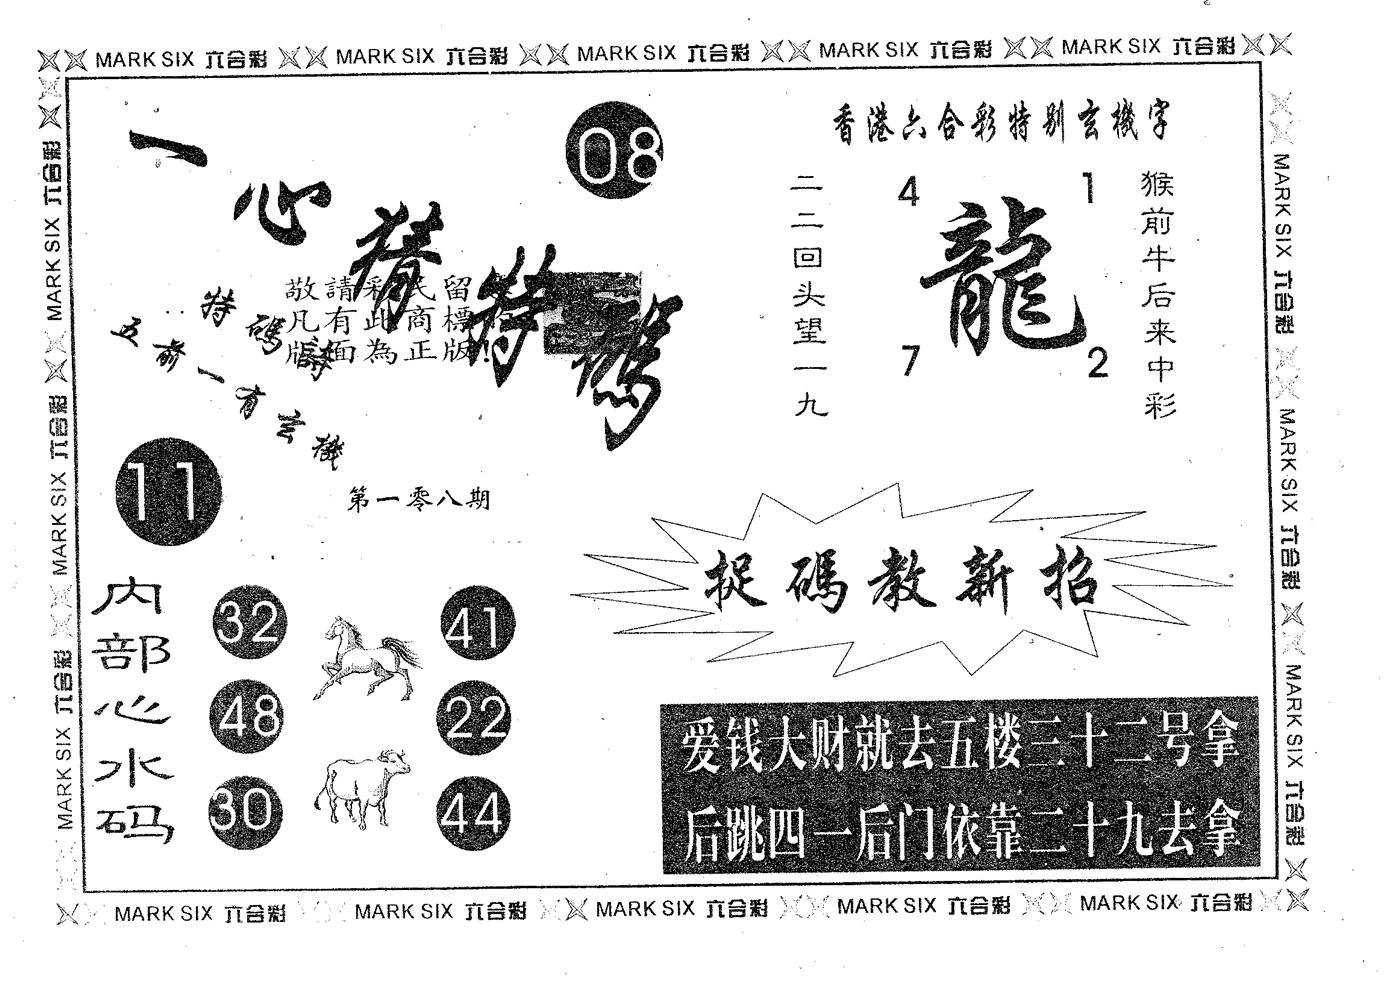 MARK SIX 六合彩 MARK SIX 六合彩 MARK SIX 六合彩 MARK SIX 六合彩 MARK SIX 六合彩
MARK SIX 六合彩 MARK SIX 六合彩 MARK SIX 六合彩
一心猜特碼
08
敬請彩民留
凡有此商標
版面為正版!
特碼詩
五前一有玄機
11
第一零八期
内部心水码
32 41
48 22
30 44
香港六合彩特别玄機字
二二回头望一九
4 1
龍
7 2
猴前牛后来中彩
捉碼教新招
爱钱大财就去五楼三十二号拿
后跳四一后门依靠二十九去拿
MARK SIX 六合彩 MARK SIX 六合彩 MARK SIX 六合彩
MARK SIX 六合彩 MARK SIX 六合彩 MARK SIX 六合彩 MARK SIX 六合彩 MARK SIX 六合彩